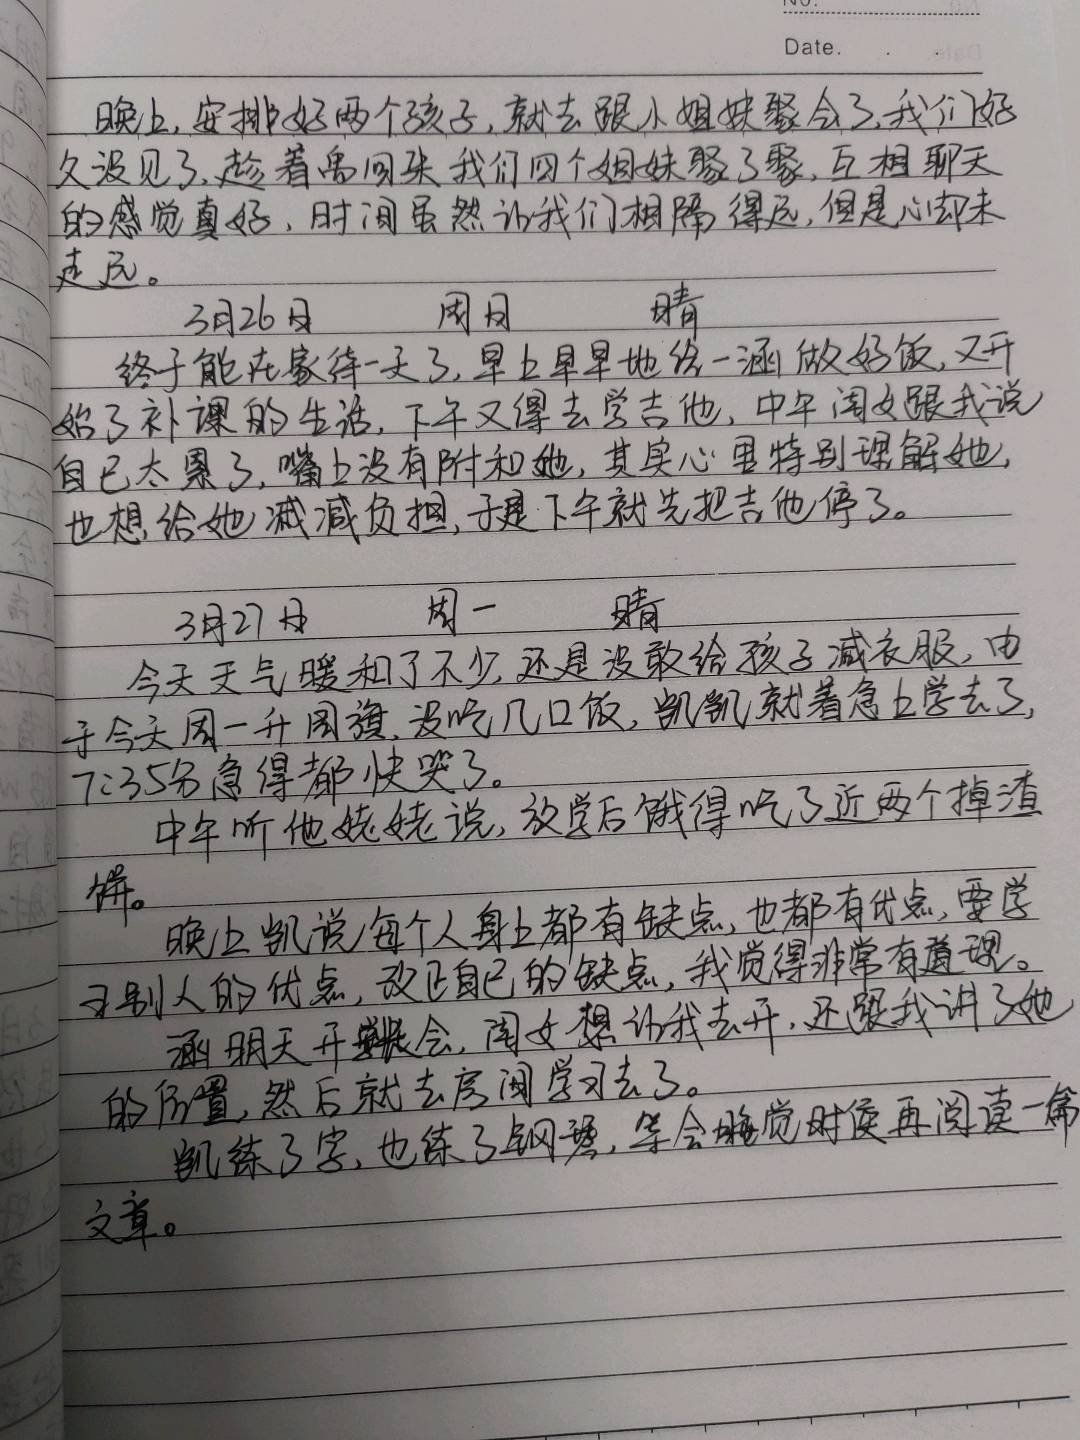 No.
Date.
晚上,安排好两个孩子,就去跟小姐妹聚会了,我们好
久没见了,趁着禹回来我们四个姐妹聚了聚,互相聊天
的感觉真好,时间虽然让我们相隔得远,但是心却未
走远。
3月26日 周日 晴
终于能在家待一天了,早上早早地给一涵做好饭,又开
始了补课的生活,下午又得去学吉他,中午闺女跟我说
自己太累了,嘴上没有附和她,其实心里特别理解她,
也想给她减减负担,于是下午就先把吉他停了。
3月27日 周一 晴
今天天气暖和了不少,还是没敢给孩子减衣服,由
于今天周一升国旗,没吃几口饭,凯凯就着急上学去了,
7:35分急得都快哭了。
中午听他姥姥说,放学后饿得吃了近两个掉渣
饼。
晚上凯说每个人身上都有缺点,也都有优点,要学
习别人的优点,改正自己的缺点,我觉得非常有道理。
涵明天开会,闺女想让我去开,还跟我讲了她
的位置,然后就去房间学习去了。
凯练了字,也练了钢琴,等会睡觉时侯再阅读一篇
文章。